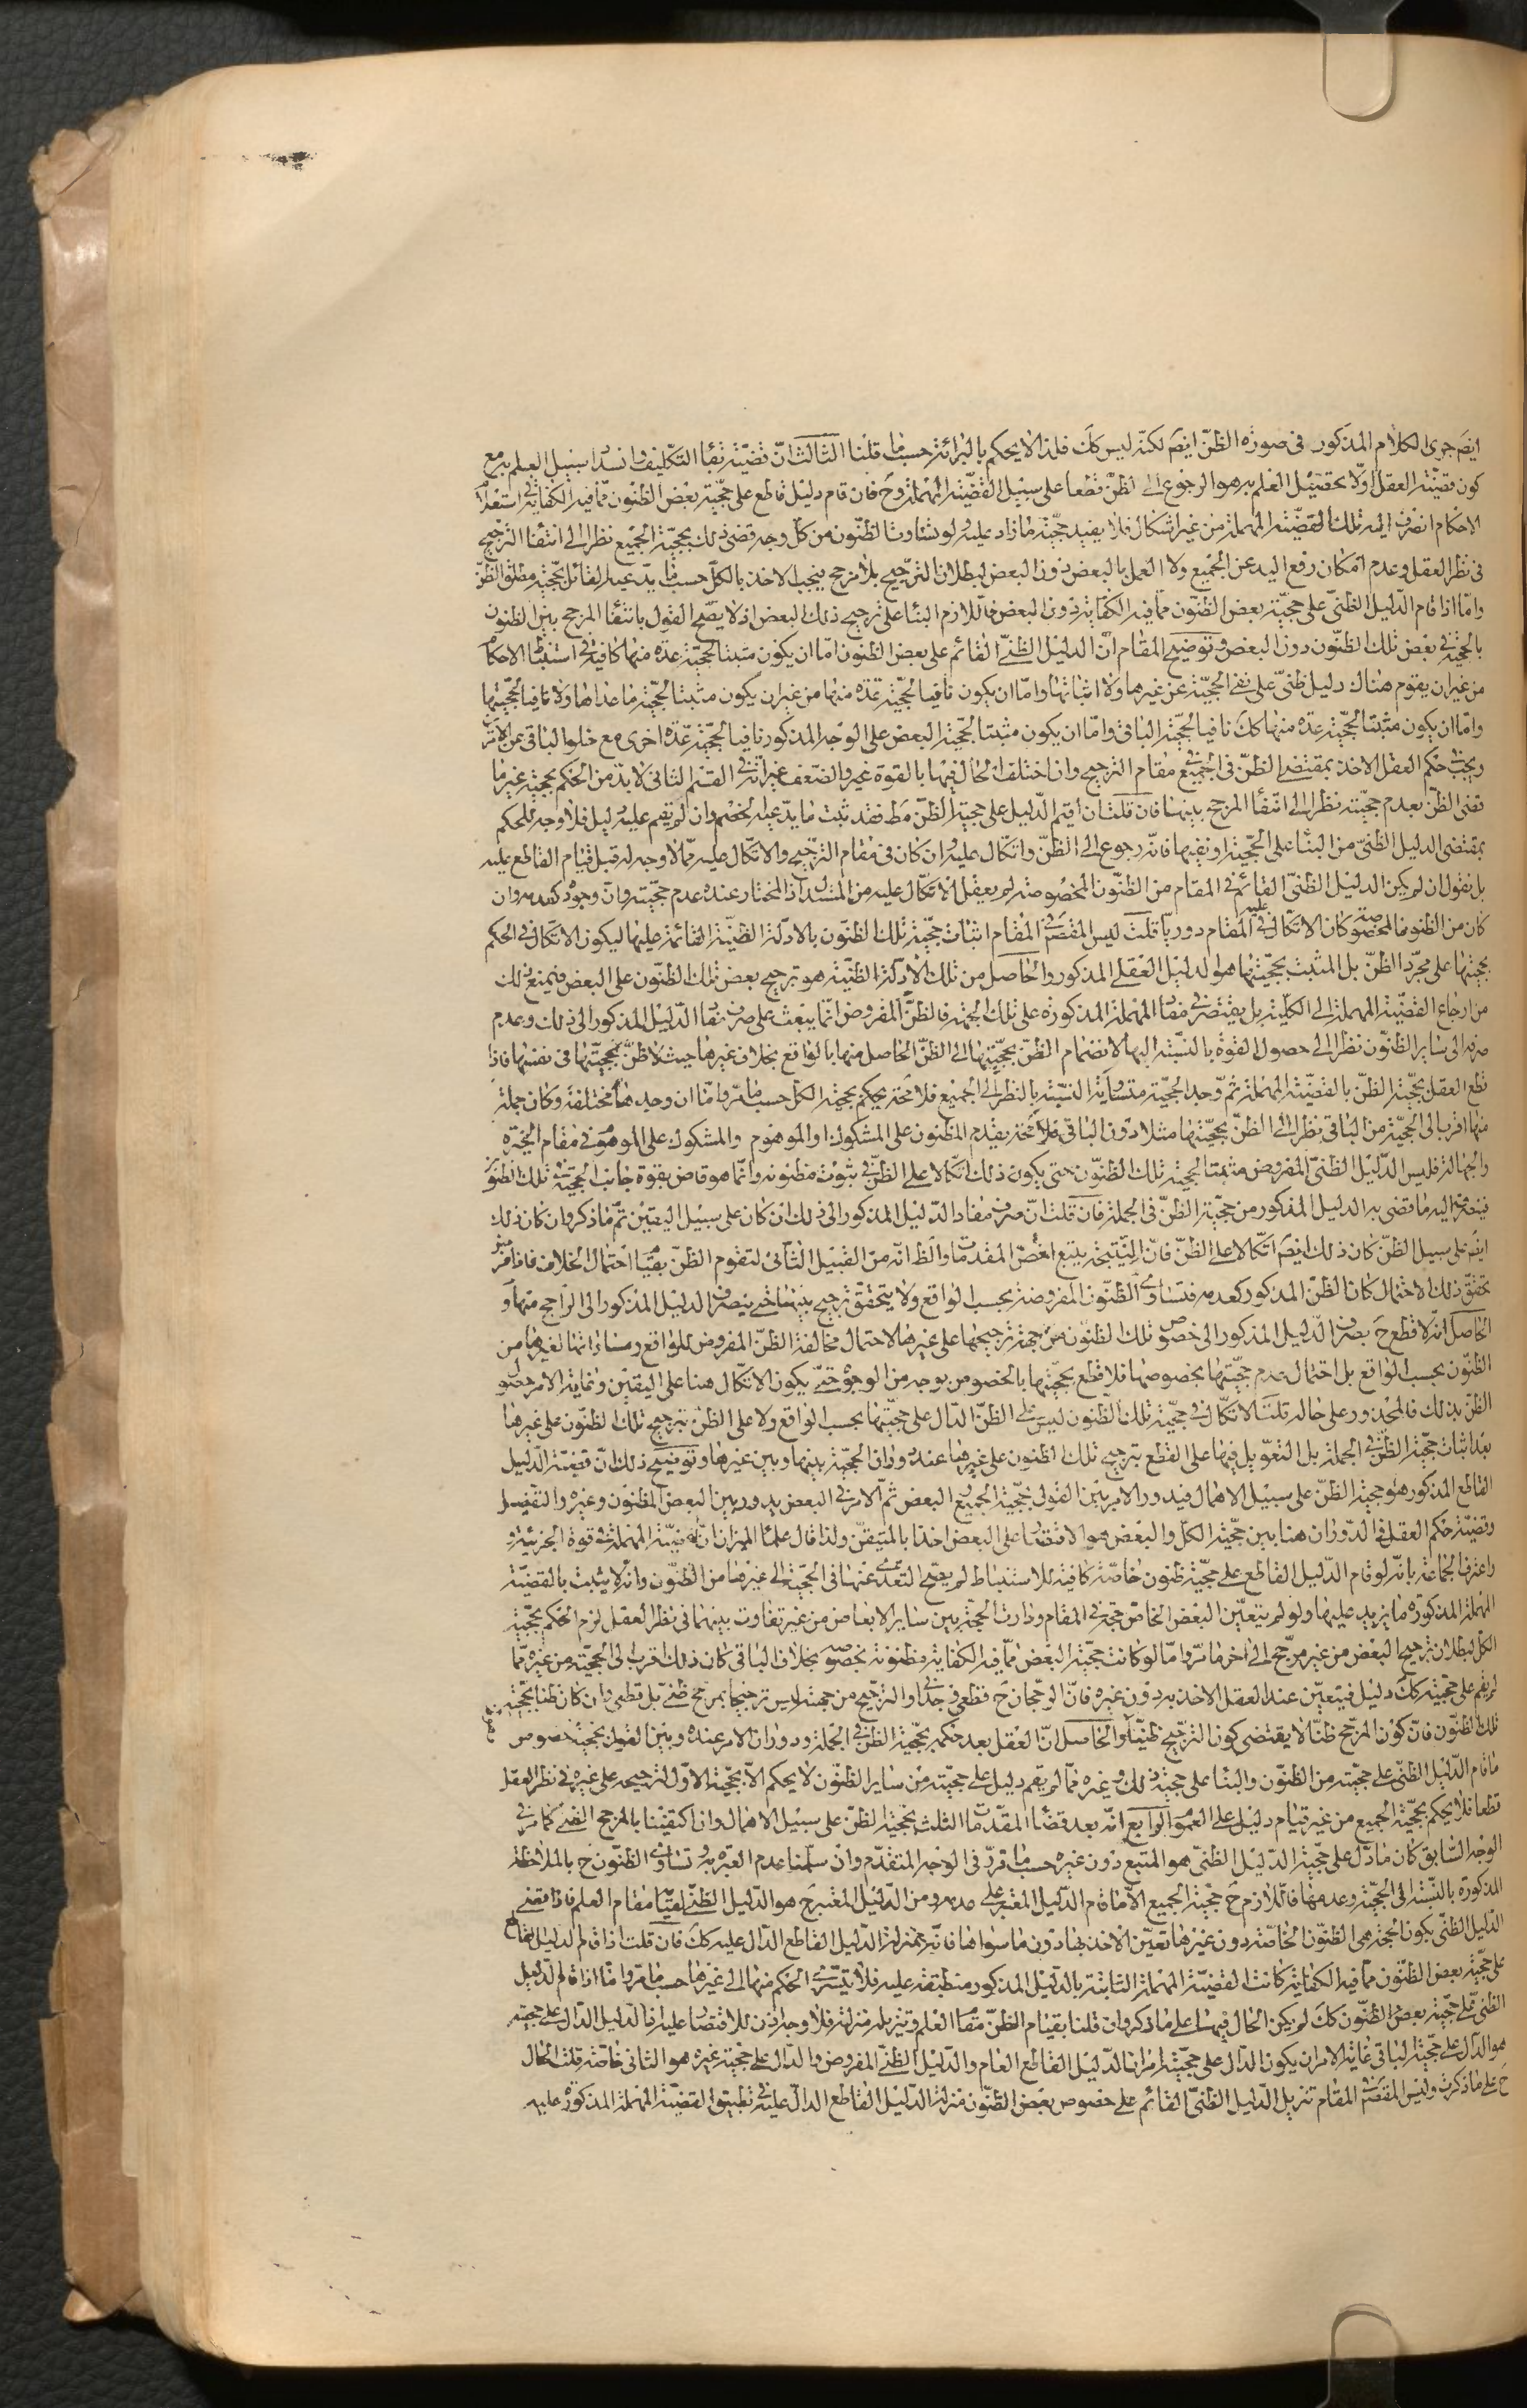 ايضا جرى الكلام المذكور في صورة الظنّ ايضا لكنه ليس كك فلذا لا يحكم بالبرائة حسبما قلنا الثالث انّ قضيّة بقاء التكليف وانسداد سبيل العلم به مع
كون قضيّة العقل اوّلا تحصيل العلم به هو الرجوع الى الظنّ قطعا على سبيل القضيّة المهملة وح فان قام دليل قاطع على حجّية بعض الظنون ممّا فيه الكفاية في استعلام
الاحكام انصرف اليه تلك القضيّة المهملة من غير اشكال فلا يفيد حجّية ما زاد عليه ولو تساوت الظنون من كلّ وجه قضى ذلك بحجّية الجميع نظرا الى انتفاء الترجيح
في نظر العقل وعدم امكان رفع اليد عن الجميع ولا العمل بالبعض دون البعض لبطلان الترجيح بلا مرجح فيجب الاخذ بالكلّ حسبما يدّعيه القائل بحجّية مطلق الظنّ
وامّا اذا قام الدّليل الظنّي على حجيّة بعض الظنون ممّا فيه الكفاية دون البعض فاللازم البناء على ترجيح ذلك البعض اذ لا يصّح القول بانتفاء المرجح بين الظنون
بالحجّية في بعض تلك الظنون دون البعض وتوضيح المقام انّ الدليل الظنّي القائم على بعض الظنون امّا ان يكون مثبتا لحجّية عدة منها كافية في استنباط الاحكام
من غير ان يقوم هناك دليل ظنّي على نفي الحجيّة عن غيرها ولا اثباتها وامّا ان يكون نافيا لحجّية عدّة منها من غير ان يكون مثبتا لحجّية ما عداها ولا نافيا لحجّيتها
وامّا ان يكون مثبتا لحجّية عدة منها كك نافيا لحجّية الباقي وامّا ان يكون مثبتا لحجّية البعض على الوجه المذكور نافيا لحجّية عدّة اخرى مع خلو الباقي عن الامرين
ويجب حكم العقل الاخذ بمقتضى الظنّ في الجميع في مقام الترجيح وان اختلف الحال فيها بالقوة والضعف غير انّه في القسم الثاني لا بدّ من الحكم بحجية غير ما
قضى الظنّ بعدم حجيّته نظرا الى انتفاء المرجح بينها فان قلت ان اقيم الدّليل على حجية الظنّ مط فقد ثبت ما يدّعيه الخصم وان لم يقم عليه دليل فلا وجه للحكم
بمقتضى الدليل الظنّي من البناء على الحجّية او نفيها فانّه رجوع الى الظنّ واتّكال عليه وان كان في مقام الترجيح والاتّكال عليه ممّا لا وجه له قبل قيام القاطع عليه
بل نقول ان لم يكن الدليل الظنّي القائم في المقام من الظنون المخصوصة لم يعقل الاتكال عليه من المستدل اذ المختار عنده عدم حجيّته وانّ وجوده كعدمه وان
كان من الظنون المخصوصة كان الاتكال عليه في المقام دوريّا قلت ليس المقصَ في المقام اثبات حجّية تلك الظنون بالادلة الظنيّة القائمة عليها ليكون الاتكال في الحكم
بحجيتها على مجرّد الظنّ بل المثبت بحجّيتها هو الدليل العقلي المذكور والحاصل من تلك الادلة الظنيّة هو ترجيح بعض تلك الظنون على البعض فيمنع ذلك
من ارجاع القضيّة المهملة الى الكليّة بل يقتصر في مفاد المهملة المذكورة على تلك الجملة فالظنّ المفروض انّما يبعث على صرف مفاد الدّليل المذكور الى ذلك وعدم
صرفه الى ساير الظنون نظرا الى حصول القوة بالنّسبة اليها لانضمام الظنّ بحجيّتها الى الظنّ الحاصل منها بالواقع بخلاف غيرها حيث لا ظنّ بحجيّتها في نفسها فاذا
قطع العقل بحجّية الظنّ بالقضيّة المهملة ثم وجد الحجيّة متساوية النسبة بالنظر الى الجميع فلا محة يحكم بحجية الكلّ حسبما مرّ وامّا ان وجدها مختلفة وكان جملة
منها اقرب الى الحجيّة من الباقي نظرا الى الظنّ بحجيّتها مثلا دون الباقي فلا محة يقدم المظنون على المشكوك او الموهوم والمشكوك على الموهوم في مقام الحيرة
والجهالة فليس الدّليل الظنيّ المفروض مثبتا لحجية تلك الظنون حتى يكون ذلك اتّكالا على الظنّ في ثبوت مظنونه وانّما هو قاض بقوة جانب الحجيّة في تلك الظنون
فينصرف اليه ما قضى به الدليل المذكور من حجيّة الظنّ في الجملة فان قلت انّ صرف مفاد الدّليل المذكور الى ذلك ان كان على سبيل اليقين تمّ ما ذكر وان كان ذلك
ايضا على سبيل الظنّ كان ذلك ايضا اتّكالا على الظنّ فانّ النّتيجة يتبع اخصّ المقدمات والظ انّه من القبيل الثاني لتقوم الظنّ بقيام احتمال الخلاف فاذا فرض
تحقق ذلك الاحتمال كان الظنّ المذكور كعدمه فتساوى الظنون المفروضة بحسب الواقع ولا يتحقق ترجيح بينها حتى ينصرف الدليل المذكور الى الراجح منها و
الحاصل انّه لا قطع ح بصرف الدّليل المذكور الى خصوص تلك الظنون من جهة ترجيحها على غيرها لاحتمال مخالفة الظنّ المفروض للواقع ومساواتها لغيرها من
الظنون بحسب الواقع بل احتمال عدم حجّيتها بخصوصها فلا قطع بحجيّتها بالخصوص بوجه من الوجوه حتى يكون الاتّكال هنا على اليقين وغاية الامر حصول
الظنّ بذلك فالمحذور على حاله قلت الاتّكال في حجيّة تلك الظنون ليس على الظنّ الدّال على حجيّتها بحسب الواقع ولا على الظنّ بترجيح تلك الظنون على غيرها
بعد اثبات حجيّة الظنّ في الجملة بل التعويل فيها على القطع بترجيح تلك الظنون على غيرها عند دوران الحجيّة بينها وبين غيرها وتوضيح ذلك انّ قضيّة الدّليل
القاطع المذكور هو حجية الظنّ على سبيل الاهمال فيدور الامر بين القول بحجيّة الجميع والبعض ثم الامر في البعض يدور بين البعض المظنون وغيره والتفصيل
وقضيّة حكم العقل في الدّوران هنا بين حجّية الكلّ والبعض هو الاقتصار على البعض اخذا بالمتيقن ولذا قال علماء الميزان انّ قضيّة المهملة في قوة الجزئية و
واعترف الجماعة بانّه لو قام الدّليل القاطع على حجيّة ظنون خاصّة كافية للاستنباط لم يصّح التعدّي عنها في الحجيّة الى غيرها من الظنون وانّه لا يثبت بالقضيّة
المهملة المذكورة ما يزيد عليها ولو لم يتعيّن البعض الخاصّ حجة في المقام ودارت الحجيّة بين ساير الابعاض من غير تفاوت بينها في نظر العقل لزم الحكم بحجّية
الكلّ لبطلان ترجيح البعض من غير مرّجح الى اخر ما مرّ وامّا لو كانت حجيّة البعض ممّا فيه الكفاية مظنونة بخصوصه بخلاف الباقي كان ذلك اقرب الى الحجيّة من غيره ممّا
لم يقم على حجيّته كك دليل فيتعيّن عند العقل الاخذ به دون غيره فانّ الرجحان ح قطعي وجداني والترجيح من جهته ليس ترجيحا بمرجح ظنّي بل قطعي وان كان ظنا بحجيّة
تلك الظنون فانّ كون المرجّح ظنّا لا يقتضي كون الترجيح ظنيّا والحاصل انّ العقل بعد حكمه بحجّية الظنّ في الجملة ودوران الامر عنده وبين القول بحجيّة خصوص
ما قام الدّليل الظنّي على حجيّته من الظنون والبناء على حجيّة ذلك وغيره ممّا لم يقم دليل على حجيّته من ساير الظنون لا يحكم الاّ بحجّية الاوّل لترجيحه على غيره في نظر العقل
قطعا فلا يحكم بحجيّة الجميع من غير قيام دليل على العموم الرابع انّه بعد قضاء المقدّمات الثلث بحجيّة الظنّ على سبيل الاهمال وان اكتفينا بالمرجح الظنّي كما مرّ في
الوجه السّابق كان ما دلّ على حجّية الدّليل الظنّي هو المتبع دون غيره حسبما قرّر في الوجه المتقدّم وان سلّمنا عدم العبرة به وتساوى الظنون ح بالملاحظة
المذكورة بالنّسبة الى الحجيّة وعدمها فاللازم ح حجيّة الجميع الاّ ما قام الدّليل المعتبر على عدمه ومن الدّليل المعتبر ح هو الدّليل الظنّي لقيامه مقام العلم فاذا قضى
الدّليل الظنّي بكون الحجّة هي الظنون الخاصّة دون غيرها تعيّن الاخذ بها دون ما سواها فانّه بمنزلة الدّليل القاطع الدّال عليه كك فان قلت اذا قام الدليل القاطع
على حجيّة بعض الظنون ممّا فيه الكفاية كانت القضيّة المهملة الثابتة بالدّليل المذكور منطبقة عليه فلا يتسرّى الحكم منها الى غيرها حسبما مرّ وامّا اذا قام الدّليل
الظنّي على حجيّة بعض الظنون كك لم يكن الحال فيها على ما ذكر وان قلنا بقيام الظنّ مقام العلم وتنزيله منزلته فلا وجه اذن للاقتصار عليه اذ الدّليل الدّال على حجيته
هو الدّال على حجيّة الباقي غاية الامر ان يكون الدّال على حجيّته امران الدّليل القاطع العام والدّليل الظنّي المفروض والدّال على حجيّة غيره هو الثاني خاصّة قلت الحال
ح على ما ذكرت وليس المقصَ في المقام تنزيل الدّليل الظنّي القائم على خصوص بعض الظنون منزلة الدّليل القاطع الدالّ عليه في تطبيق القضيّة المهملة المذكورة عليه